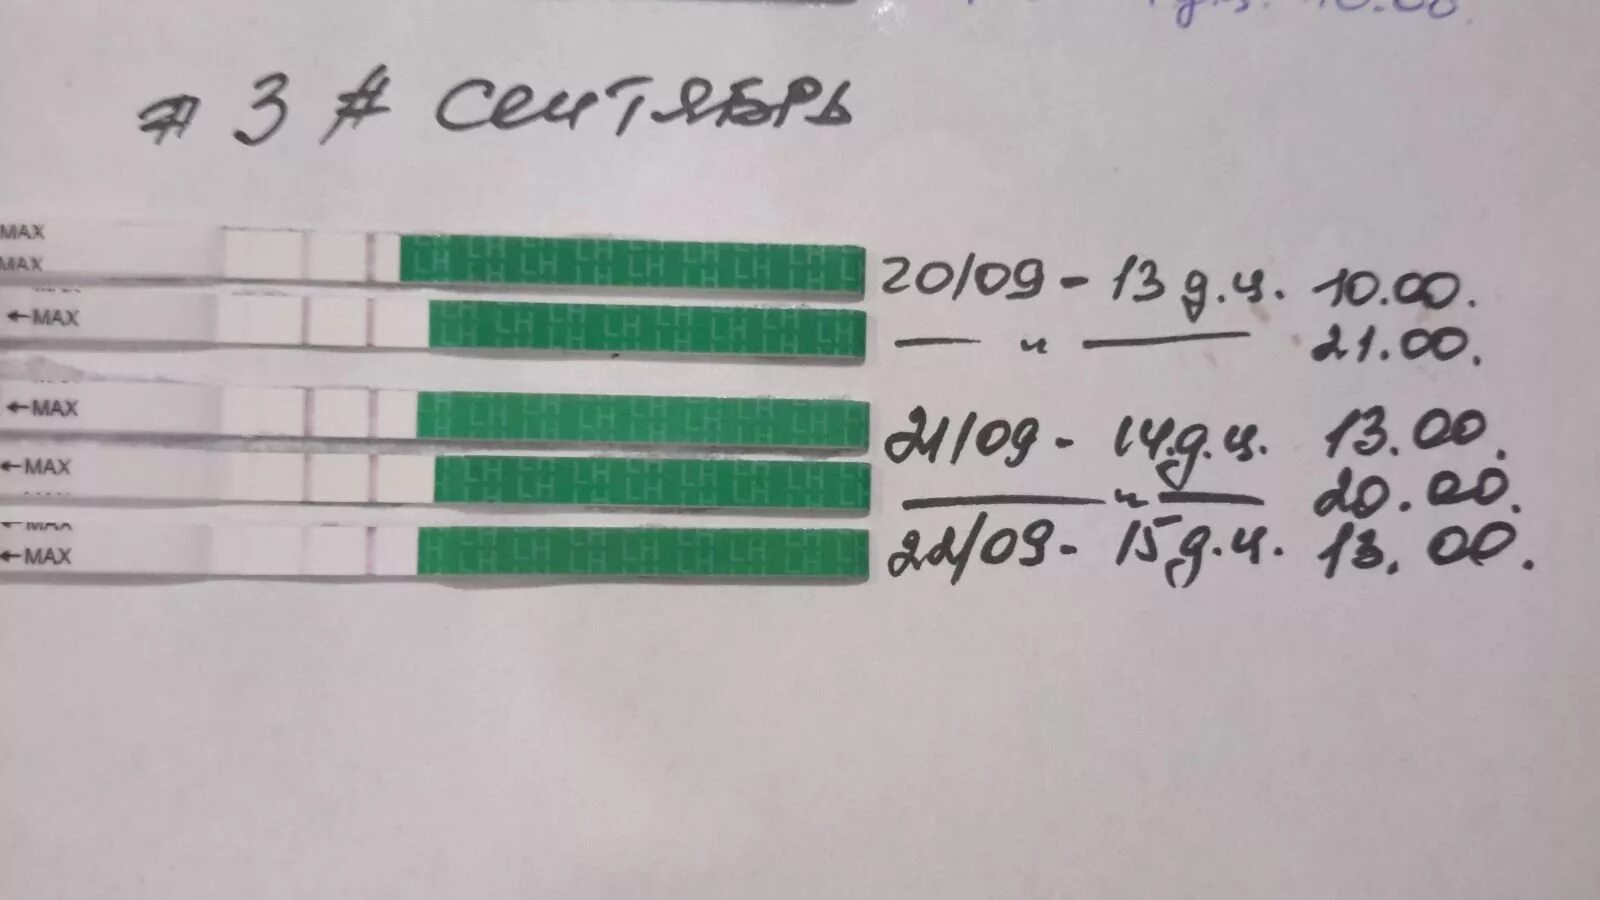 10.00.
# 3 # сентябрь
MAX
MAX
LH LH LH LH LH LH
20/09 - 13 д.ц. 10.00.
←MAX
LH LH LH LH LH LH
— " — 21.00.
←MAX
LH LH LH LH LH LH
21/09 - 14 д.ц. 13.00.
←MAX
LH LH LH LH LH LH
— " — 20.00.
MAX
←MAX
LH LH LH LH LH LH
22/09 - 15 д.ц. 13.00.